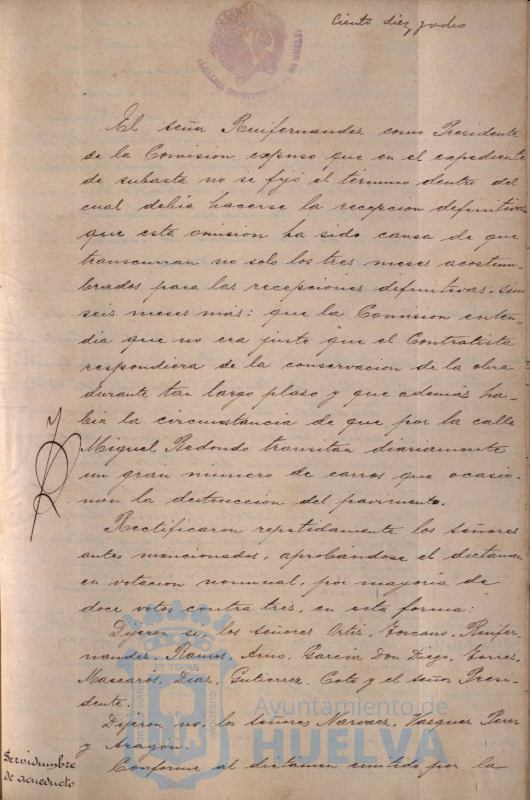 Ciento diez y ocho
El señor Ruifernandez como Presidente
de la Comision expuso que en el expediente
de subasta no se fijó el término dentro del
cual debia hacerse la recepcion definitiva,
que esta omision ha sido causa de que
transcurran no solo los tres meses acostum-
brados para las recepciones definitivas, sino
seis meses más: que la Comision enten-
dia que no era justo que el Contratista
respondiera de la conservacion de la obra
durante tan largo plaso y que además ha-
bia la circunstancia de que por la calle
Miguel Redondo transitan diariamente
un gran número de carros que ocasio-
nan la destruccion del pavimento.
Rectificaron repetidamente los señores
antes mencionados, aprobándose el dictamen
en votacion nominal, por mayoría de
doce votos contra tres, en esta forma:
Dijeron si, los señores Ortiz, Toscano, Ruifer-
nandez, Ramos, Amo, García Don Diego, Torres,
Mascarós, Diaz, Gutierrez, Coto y el señor Presi-
dente.
Dijeron no, los señores Narvaez, Vasquez Perez
y Aragón.
Servidumbre
de acueducto
Conforme al dictamen emitido por la
Ayuntamiento de
HUELVA